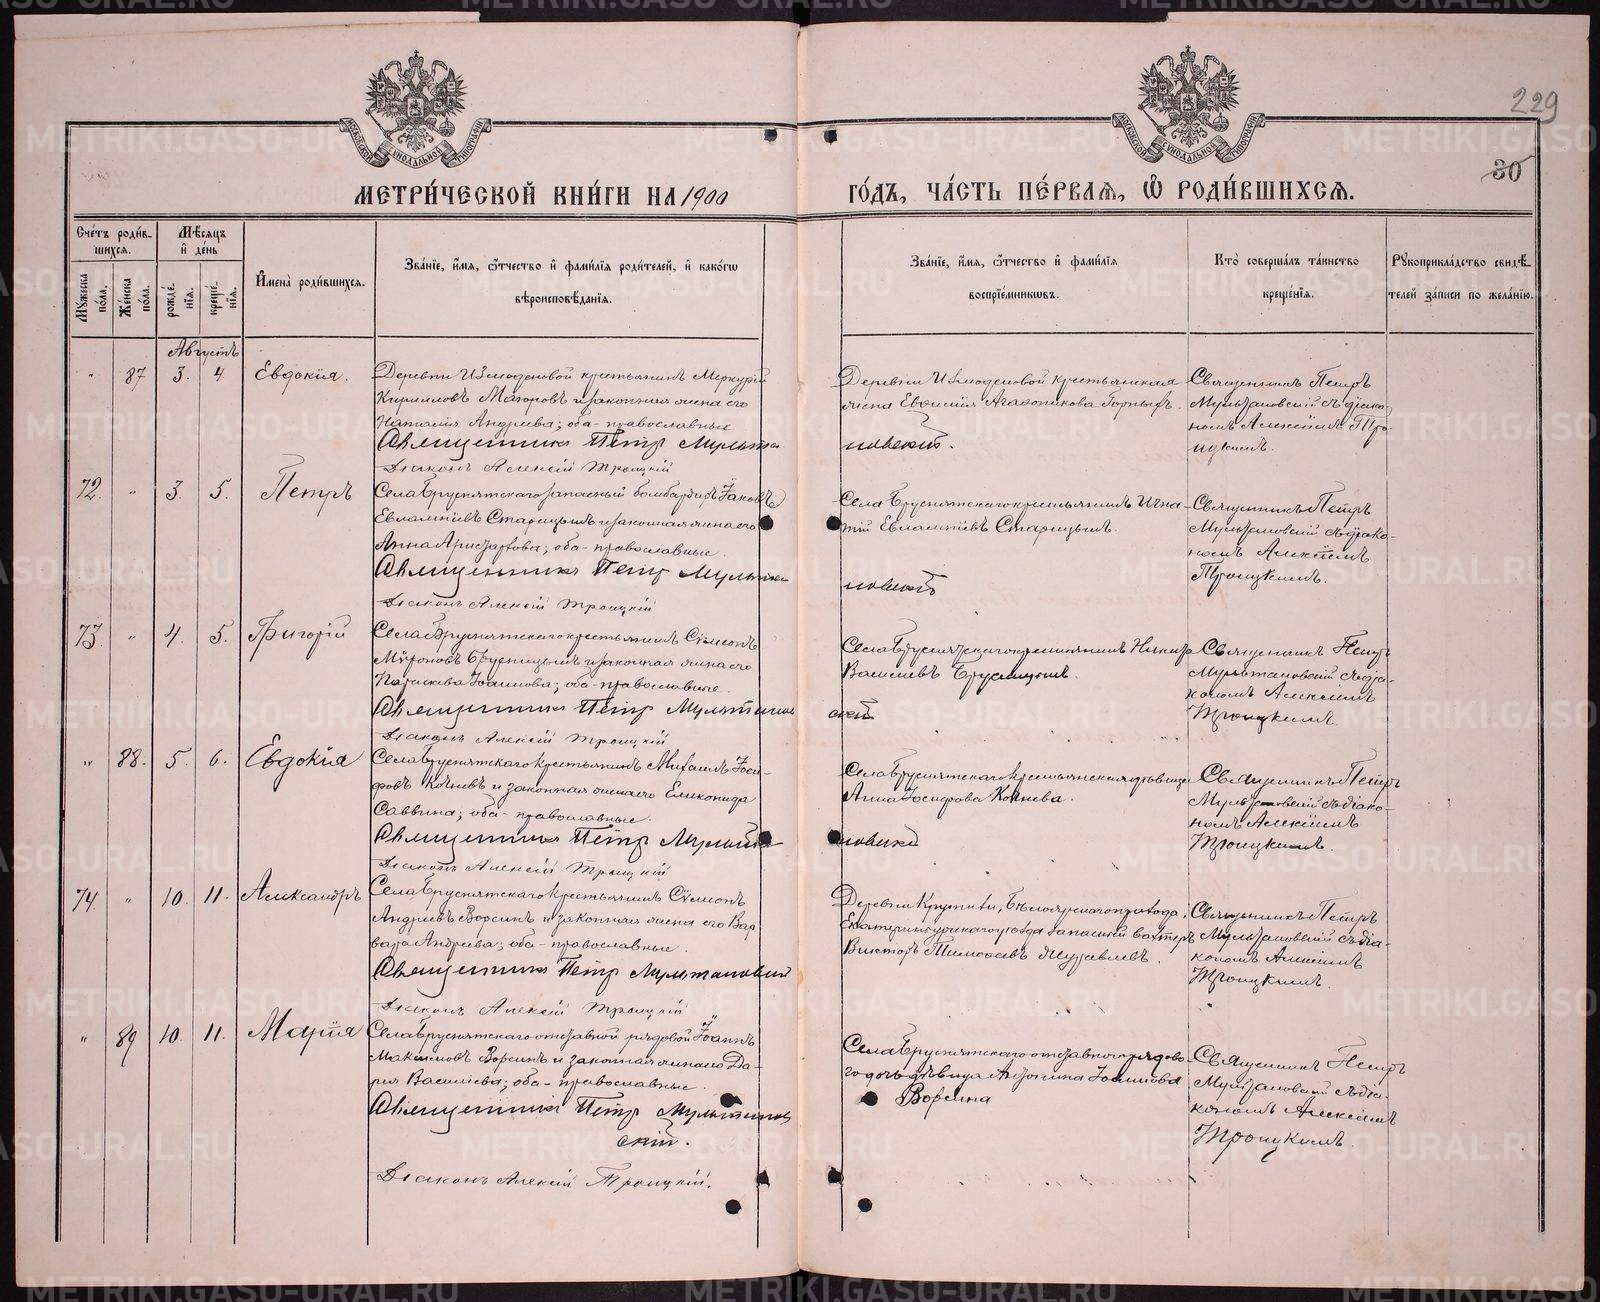 229
30
МОСКОВСКОЙ СѴНОДАЛЬНОЙ ТИПОГРАФІИ
МОСКОВСКОЙ СѴНОДАЛЬНОЙ ТИПОГРАФІИ
МЕТРИ́ЧЕСКОЙ КНИ́ГИ НА 1900
ГО́ДЪ, ЧА́СТЬ ПЕ́РВАѦ, Ѡ РОДИ́ВШИХСѦ.
Сче́тъ роди́в-
шихсѧ.
Мꙋ́жеска по́ла.
Же́нска по́ла.
Мѣ́сѧцъ
и де́нь
рожде́-
нїѧ.
креще́-
нїѧ.
Имена̀ роди́вшихсѧ.
Зва́нїе, и́мѧ, ѻ́тчество и фами́лїѧ роди́телей, и како́гѡ
вѣроисповѣ́данїѧ.
Зва́нїе, и́мѧ, ѻ́тчество и фами́лїѧ
воспрїе́мникѡвъ.
Кто̀ соверша́лъ та́инство
креще́нїѧ.
Рꙋкоприкла́дство свидѣ́-
телей за́писи по жела́нїю.
Августъ
" 87 3. 4 Евдокія.
Деревни Измоденовой крестьянинъ Меркурій
Кирилловъ Мазоровъ и законная жена его
Наталія Андреева; оба православные
Священникъ Петръ Мульта
новский.
Діаконъ Алексій Троицкій
Деревни Измоденовой крестьянская
жена Евфимія Агафоникова
Священникъ Петръ
Мультановскій съ діако-
номъ Алексіемъ Тро-
ицкимъ.
72. " 3. 5. Петръ
Села Бруснятскаго запасный бомбардиръ Іаковъ
Евлампіевъ Старицынъ и законная жена его
Анна Аристархова; оба православные.
Священникъ Петръ Мульта
новский
Діаконъ Алексій Троицкій
Села Бруснятскаго крестьянинъ Игна-
тій Евлампіевъ Старицынъ.
Священникъ Петръ
Мультановскій съ діако-
номъ Алексіемъ
Троицкимъ.
73. " 4. 5. Григорій
Села Бруснятскаго крестьянинъ Сѵмеонъ
Мѵроновъ Брусницынъ и законная жена его
Параскева Іоаннова; оба православные.
Священникъ Петръ Мультанов
ский
Діаконъ Алексій Троицкій
Села Бруснятскаго крестьянинъ
Василіевъ Брусницынъ.
Священникъ Петръ
Мультановскій съ діа-
кономъ Алексіемъ
Троицкимъ.
" 88. 5. 6. Евдокія
Села Бруснятскаго крестьянинъ Михаилъ Іоси-
фовъ Коневъ и законная жена его Еликонида
Саввина; оба православные.
Священникъ Петръ Мульта
новский
Діаконъ Алексій Троицкій
Села Бруснятскаго крестьянская дѣвица
Анна Іосифова Конева.
Священникъ Петръ
Мультановскій съ діако-
номъ Алексіемъ
Троицкимъ.
74. " 10. 11. Александръ
Села Бруснятскаго крестьянинъ Сѵмеонъ
Андреевъ Ворсинъ и законная жена его Вар-
вара Андреева; оба православные.
Священникъ Петръ Мультановский
Діаконъ Алексій Троицкій
Деревни Крутихи, Бѣлоярскаго прихода,
Екатеринбургскаго уѣзда запасный вахтеръ
Викторъ Тимофеевъ Журавлевъ.
Священникъ Петръ
Мультановскій съ діа-
кономъ Алексіемъ
Троицкимъ.
" 89 10. 11. Марія
Села Бруснятскаго отставной рядовой Іоаннъ
Максимовъ Ворсинъ и законная жена его Да-
рія Василіева; оба православные.
Священникъ Петръ Мультанов
скій.
Діаконъ Алексій Троицкій.
Села Бруснятскаго отставного рядово-
го дочь дѣвица Антонина Іоаннова
Ворсина
Священникъ Петръ
Мультановскій съ діа-
кономъ Алексіемъ
Троицкимъ.
METRIKI.GASO-URAL.RU